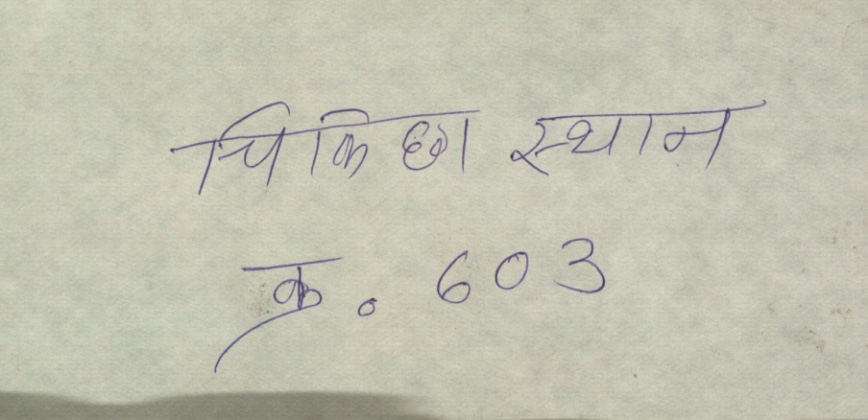 चिकिछा स्थान
क्र. 603